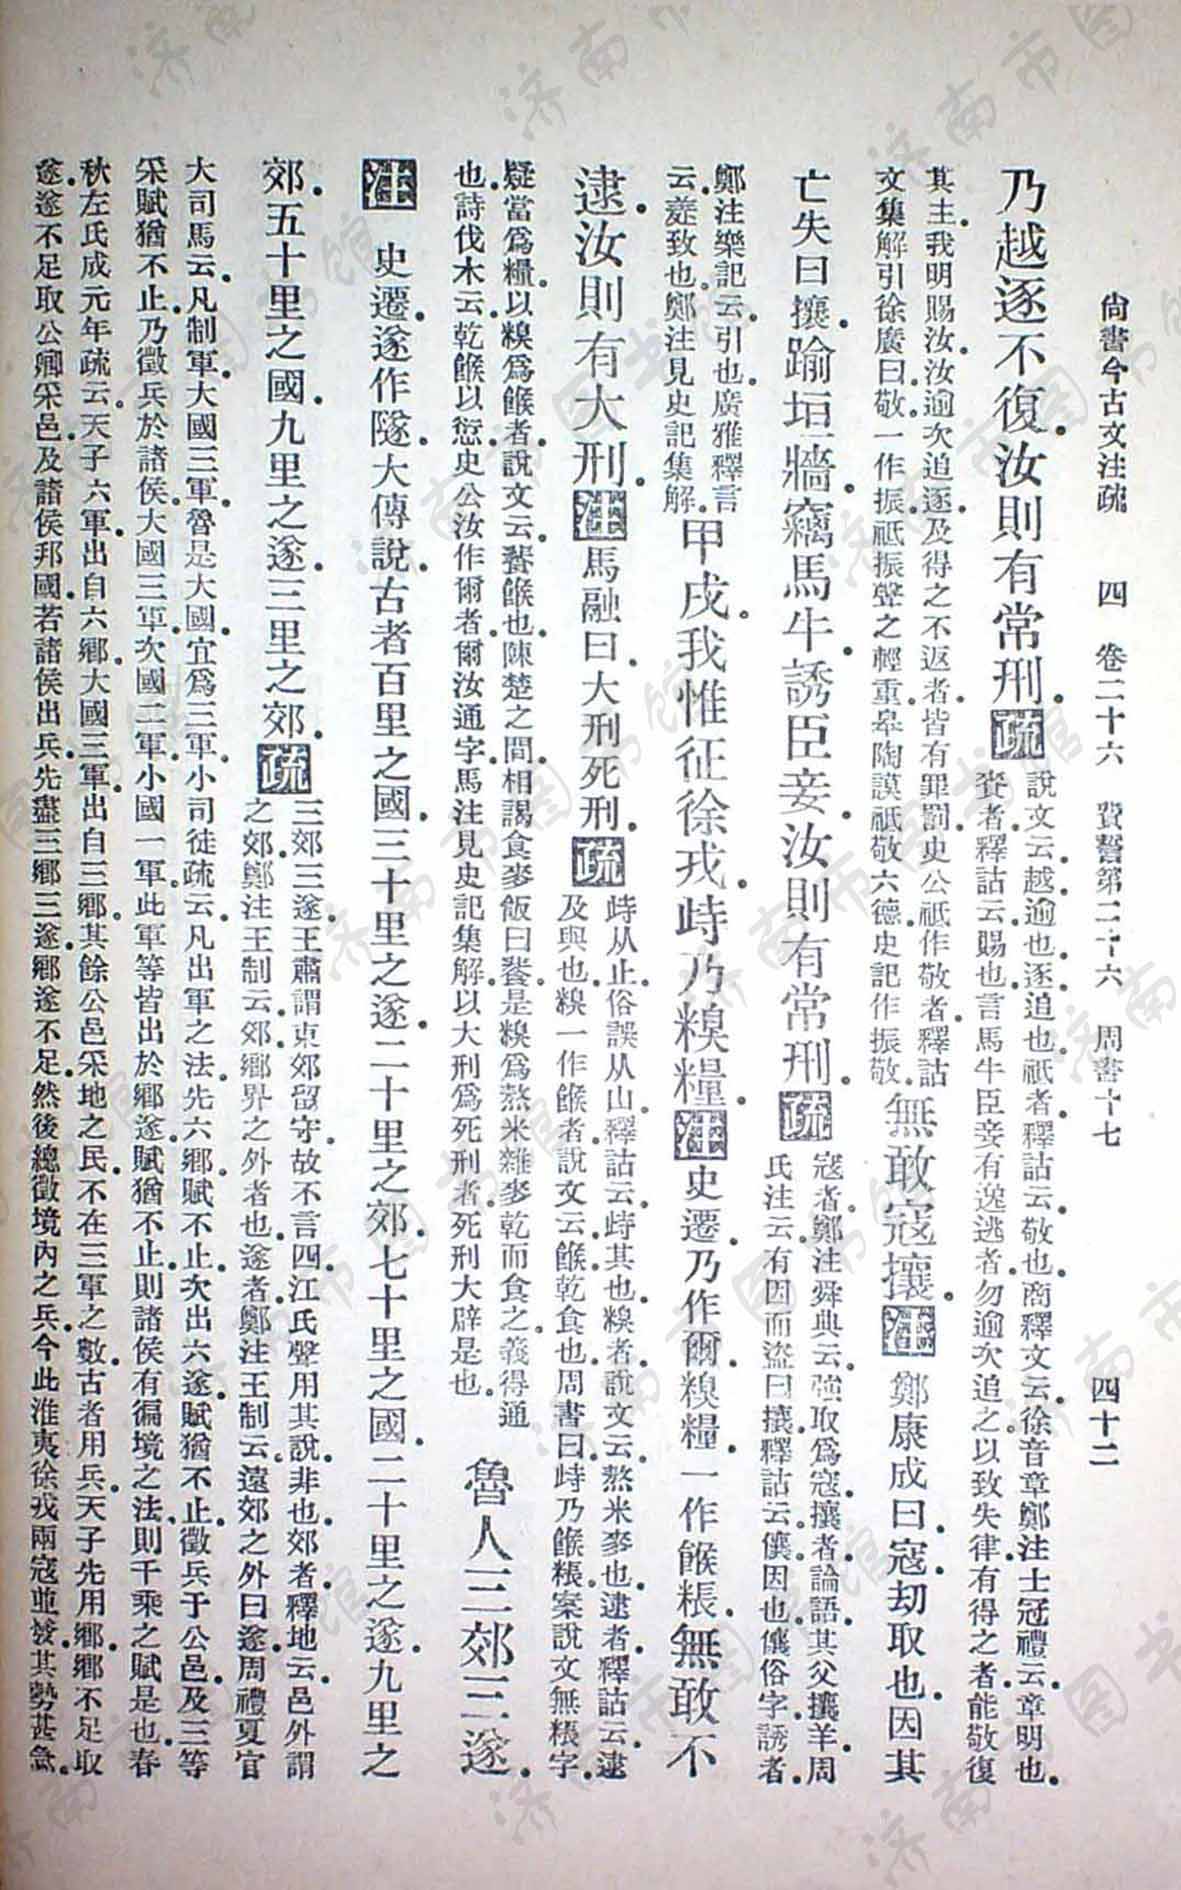 尙書今古文注疏　四　卷二十六　費誓第二十六　周書十七　四十二
乃越逐不復汝則有常刑疏
說文云越逾也逐追也祗者釋詁云敬也商釋文云徐音章鄭注士冠禮云章明也
賚者釋詁云賜也言馬牛臣妾有逸逃者勿逾次追之以致失律有得之者能敬復
其主我明賜汝汝逾次追逐及得之不返者皆有罪罰史公祗作敬者釋詁
文集解引徐廣曰敬一作振祗振聲之輕重皋陶謨祗敬六德史記作振敬
無敢寇攘注鄭康成曰寇劫取也因其
亡失曰攘踰垣牆竊馬牛誘臣妾汝則有常刑疏
寇者鄭注舜典云強取爲寇攘者論語其父攘羊周
氏注云有因而盜曰攘釋詁云儴因也儴俗字誘者
鄭注樂記云引也廣雅釋言
云㽳致也鄭注見史記集解
甲戌我惟征徐戎峙乃糗糧注史遷乃作爾糗糧一作餱粻無敢不
逮汝則有大刑注馬融曰大刑死刑疏
峙从止俗誤从山釋詁云峙其也糗者說文云熬米麥也逮者釋詁云逮
及與也糗一作餱者說文云餱乾食也周書曰峙乃餱粻案說文無粻字
疑當爲糧以糗爲餱者說文云餥餱也陳楚之間相謁食麥飯曰餥是糗爲熬米雜麥乾而食之義得通
也詩伐木云乾餱以愆史公汝作爾者爾汝通字馬注見史記集解以大刑爲死刑者死刑大辟是也
魯人三郊三遂
注　史遷遂作隧大傳說古者百里之國三十里之遂二十里之郊七十里之國二十里之遂九里之
郊五十里之國九里之遂三里之郊疏
三郊三遂王肅謂東郊留守故不言四江氏聲用其說非也郊者釋地云邑外謂
之郊鄭注王制云郊鄉界之外者也遂者鄭注王制云遠郊之外曰遂周禮夏官
大司馬云凡制軍大國三軍魯是大國宜爲三軍小司徒疏云凡出軍之法先六鄉賦不止次出六遂賦猶不止徵兵于公邑及三等
采賦猶不止乃徵兵於諸侯大國三軍次國二軍小國一軍此軍等皆出於鄉遂賦猶不止則諸侯有徧境之法則千乘之賦是也春
秋左氏成元年疏云天子六軍出自六鄉大國三軍出自三鄉其餘公邑采地之民不在三軍之數古者用兵天子先用鄉鄉不足取
遂遂不足取公卿采邑及諸侯邦國若諸侯出兵先盡三鄉三遂鄉遂不足然後總徵境內之兵今此淮夷徐戎兩寇並發其勢甚急